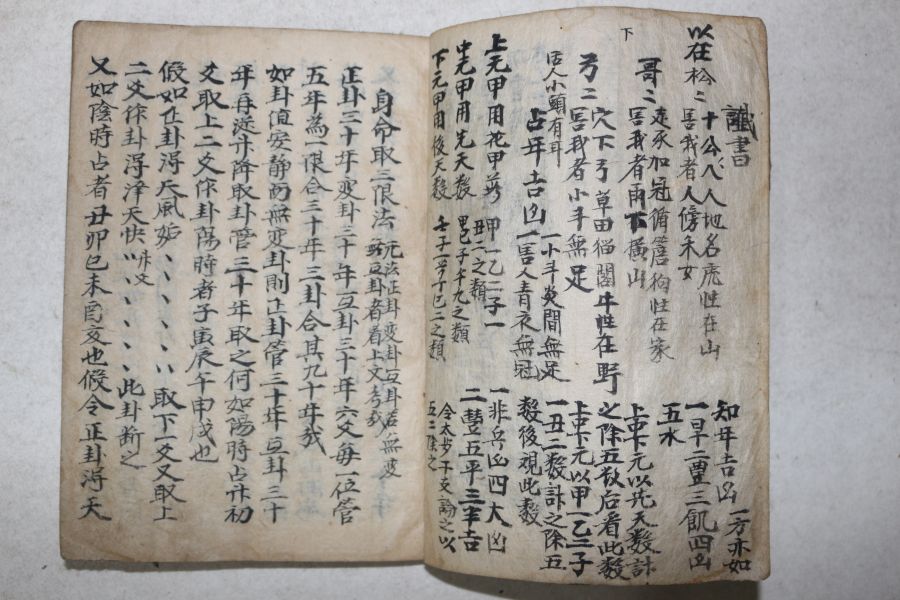 讖書
以在松〻 十公八人地名 虎性在山
害我者人傍禾女
哥〻 走豕加冠 狗性在家
害我者雨下橫山
下
穴下弓草田猫閣牛性在野
弓〻 害我者小斗無足
活人小頭有耳
占年吉凶
一小斗炎間無足
一害人青衣無冠
上元甲用花甲 甲一乙二子一
丑二之類
中元甲用先天數
下元甲用後天數
知年吉凶 一方亦如
一旱二豊三飢四凶
五水
上中下元以先天數計
之除五数后看此數
上中下元以甲一乙二子
一丑二數計之除五
數後視此數
一非兵凶四大凶
二豊五平三半吉
令太歲干支論之以
五除之
身命取三限法
正卦三十年变卦三十年互卦三十年六爻每一位管
五年為一限合三十年三卦合其九十年哉
如卦值安静而無变卦則正卦管三十年互卦三十
年再逆升降取卦管三十年取之何如陽時占卦初
爻取上二爻作卦陽時者子寅辰午申戌也
假如正卦得天風姤 取下一爻又取上
二爻作卦得澤天快 此卦断之
又如陰時占者丑卯巳未酉亥也假令正卦得天